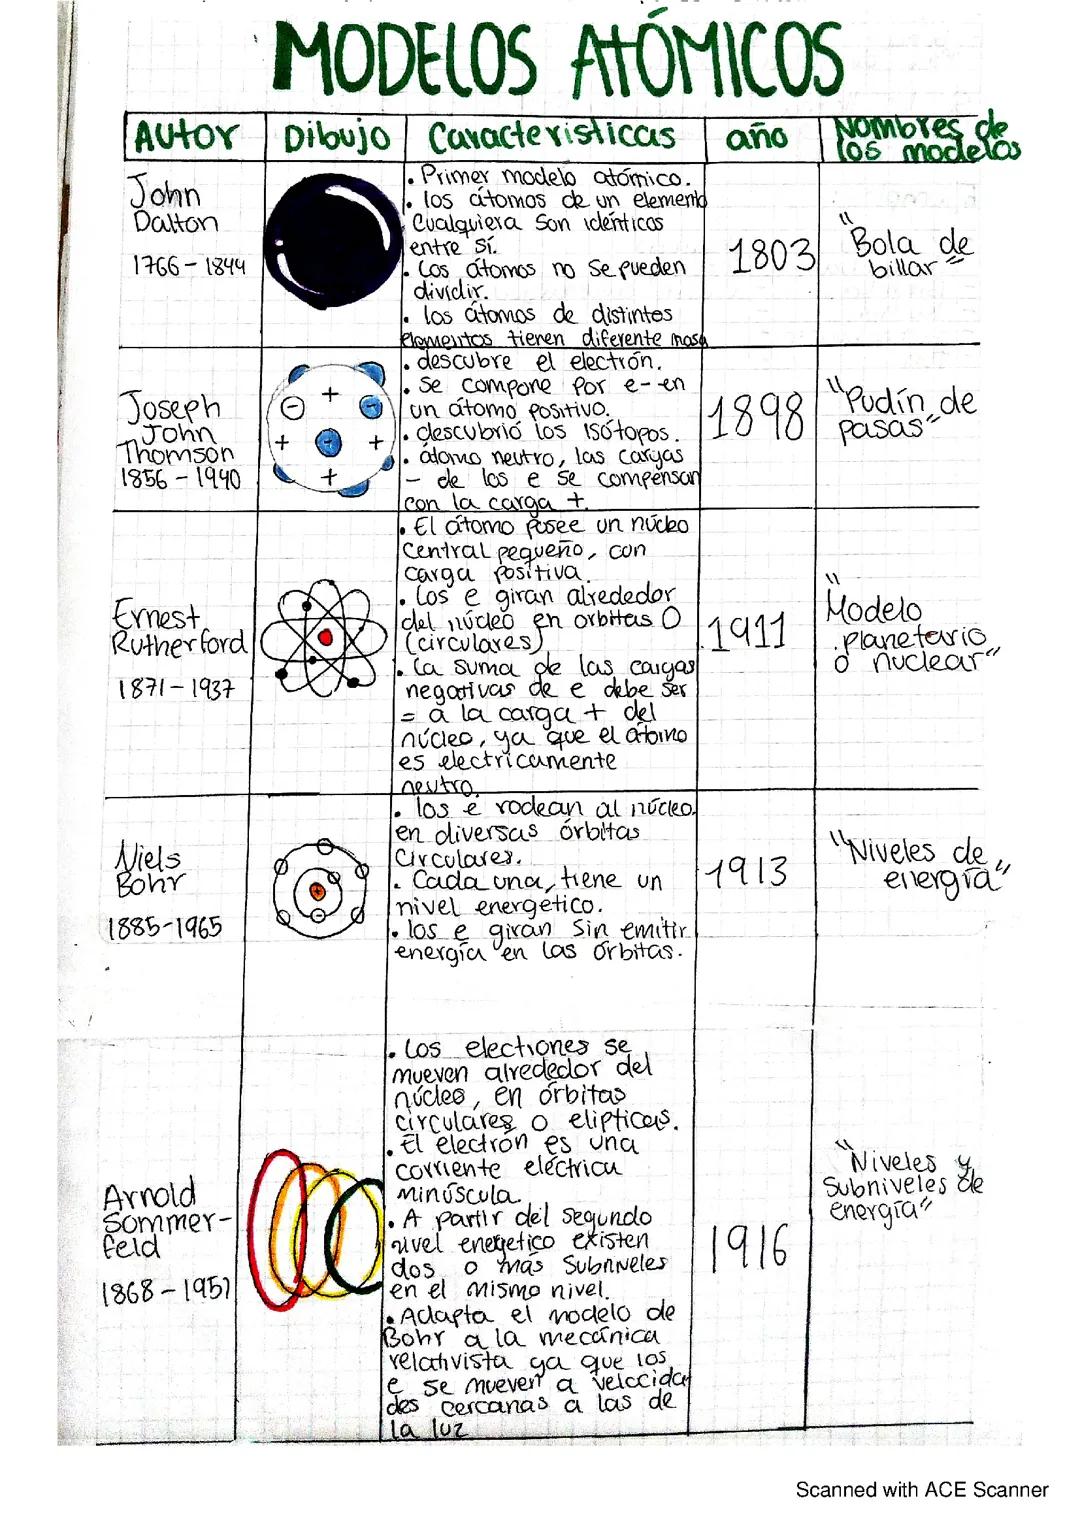 MODELOS ATÓMICOS
Autor
Dibujo
Caracteristicas
año
Nombres de
los modelos
John
Dalton
1766 - 1844
. Primer modelo atómico.
. los átomos de un elemento
cualquiera son idénticos
entre sí.
. Los átomos no se pueden
dividir.
. los átomos de distintos
elementos tienen diferente masa
1803
"Bola de
billar"
Joseph
John
Thomson
1856 - 1940
- + -
+ - +
+
. descubre el electrón.
. Se compone por e- en
un átomo positivo.
. descubrió los isótopos.
. átomo neutro, las cargas
- de los e se compensan
con la carga +.
1898
"Pudín de
pasas"
Ernest
Rutherford
1871 - 1937
. El átomo posee un núcleo
central pequeño, con
carga positiva.
. Los e giran alrededor
del núcleo en orbitas O
(circulares)
. La suma de las cargas
negativas de e debe ser
= a la carga + del
núcleo, ya que el átomo
es electricamente
neutro.
1911
"
Modelo
planetario
o nuclear"
Niels
Bohr
1885-1965
. los e rodean al núcleo
en diversas órbitas
circulares.
. Cada una, tiene un
nivel energetico.
. los e giran sin emitir
energía en las órbitas.
1913
"Niveles de
energía"
Arnold
Sommer-
feld
1868 - 1951
. Los electrones se
mueven alrededor del
núcleo, en órbitas
circulares o elipticas.
. El electrón es una
corriente eléctrica
minúscula.
. A partir del segundo
nivel enegetico existen
dos o más subniveles
en el mismo nivel.
. Adapta el modelo de
Bohr a la mecánica
relativista ya que los
e se mueven a velocida
des cercanas a las de
la luz
1916
"Niveles y
subniveles de
energía"
Scanned with ACE Scanner